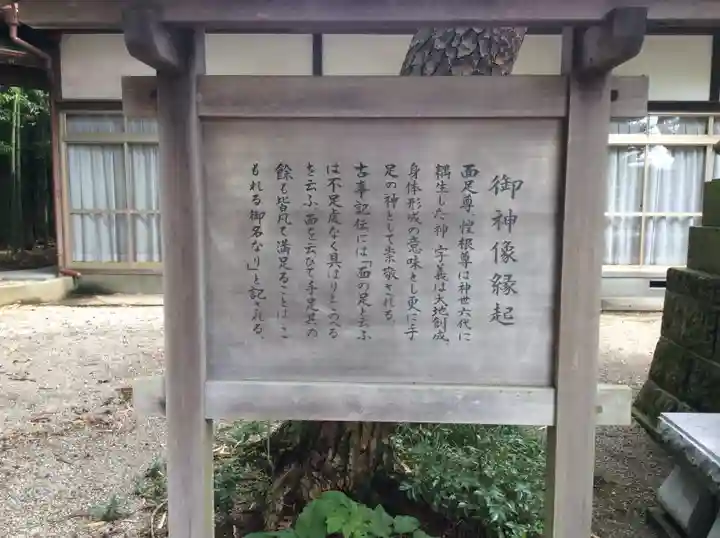 御神像縁起
面足尊、惶根尊は神世六代に
耦生した神 字義は大地創成、
身体形成の意味とし更に手
足の神として崇敬される。
古事記伝には「面の足と云ふ
は不足處なく具はりとゝのへる
を云ふ、面を云ひて手足其の
餘も皆凡て満足ることは、こ
もれる御名なり」と記される。